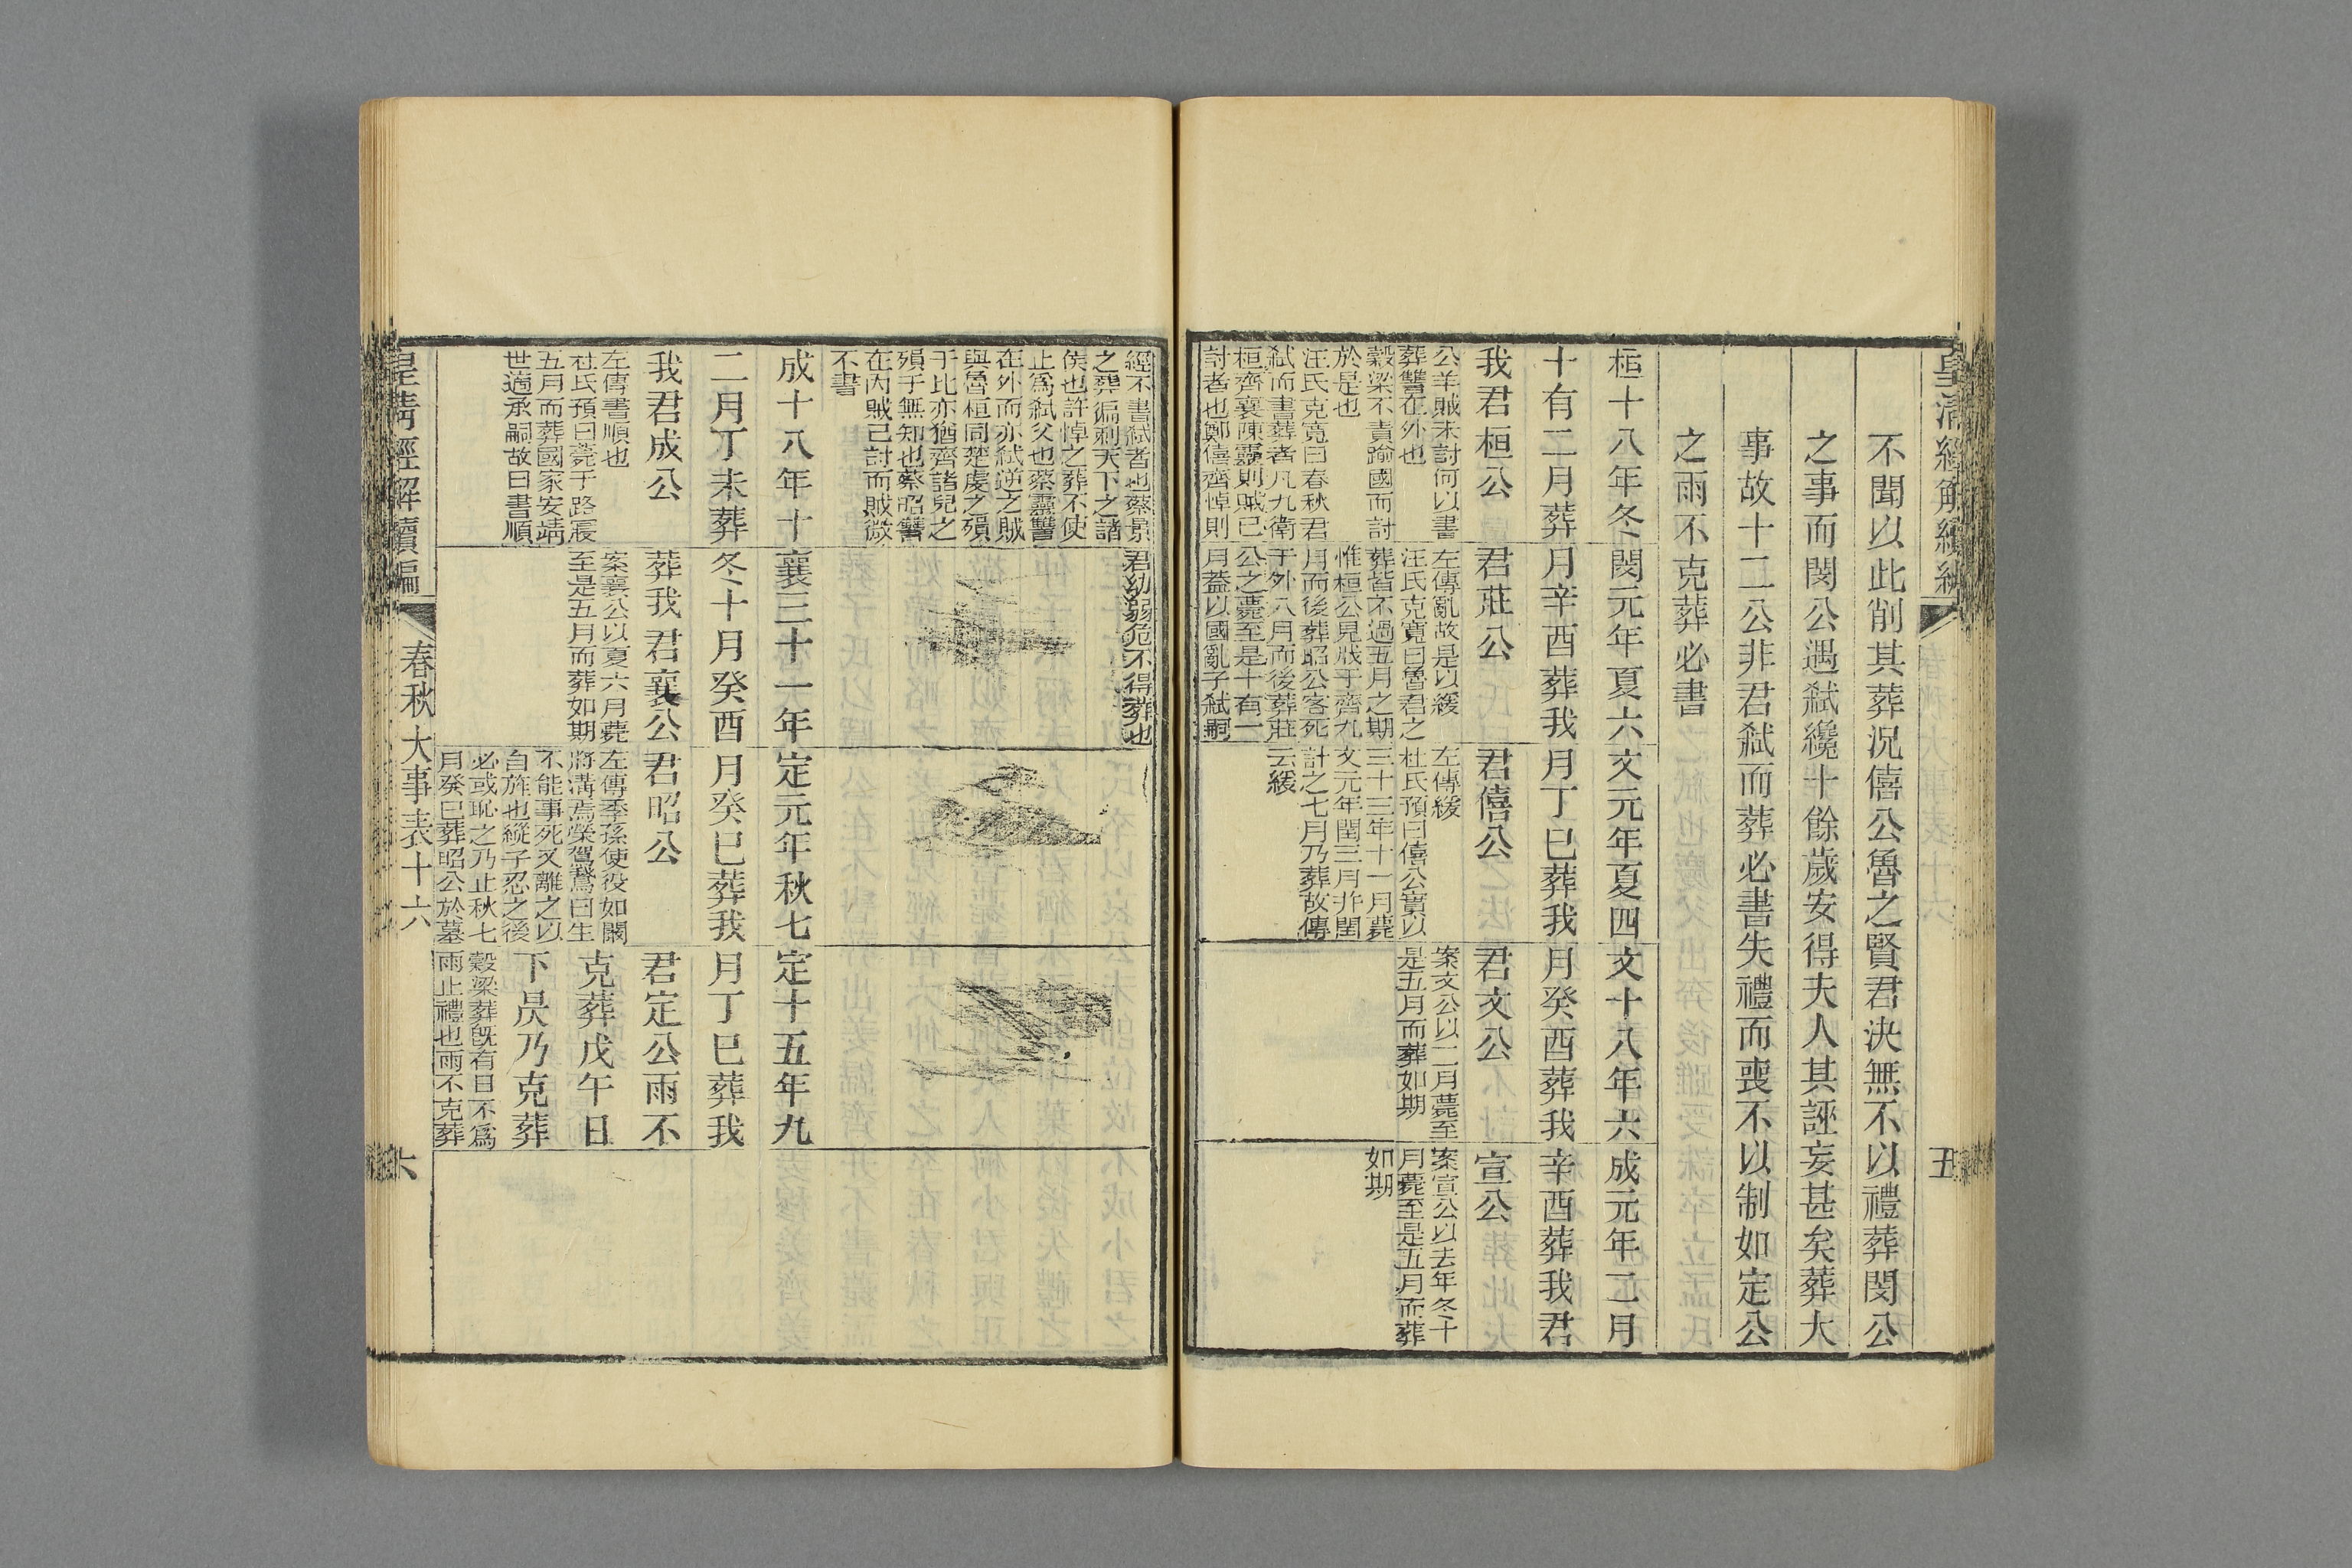 皇清經解續編
五
不聞以此削其葬況僖公魯之賢君決無不以禮葬閔公
之事而閔公遇弒纔十餘歲安得夫人其誣妄甚矣葬大
事故十二公非君弒而葬必書失禮而喪不以制如定公
之雨不克葬必書
桓十八年冬
十有二月葬
我君桓公
公羊賊未討何以書
葬讐在外也
穀梁不責踰國而討
於是也
汪氏克寬曰春秋君
弒而書葬者凡九衛
桓齊襄陳靈則賊已
討者也鄭僖齊悼則
閔元年夏六
月辛酉葬我
君莊公
左傳亂故是以緩
汪氏克寬曰魯君之
葬皆不過五月之期
惟桓公見戕于齊九
月而後葬昭公客死
于外八月而後葬莊
公之薨至是十有一
月葢以國亂子弒嗣
文元年夏四
月丁巳葬我
君僖公
左傳緩
杜氏預曰僖公實以
三十三年十一月薨
文元年閏三月幷閏
計之七月乃葬故傳
云緩
文十八年六
月癸酉葬我
君文公
案文公以二月薨至
是五月而葬如期
成元年二月
辛酉葬我君
宣公
案宣公以去年冬十
月薨至是五月而葬
如期
經不書弒者也蔡景
之葬徧刺天下之諸
侯也許悼之葬不使
止為弒父也蔡靈讐
在外而亦弒逆之賊
與魯桓同楚虔之殞
于比亦猶齊諸兒之
殞于無知也蔡昭讐
在內賊已討而賊微
不書
君幼弱危不得葬也
成十八年十
二月丁未葬
我君成公
左傳書順也
杜氏預曰薨于路寢
五月而葬國家安靖
世適承嗣故曰書順
襄三十一年
冬十月癸酉
葬我君襄公
案襄公以夏六月薨
至是五月而葬如期
定元年秋七
月癸巳葬我
君昭公
左傳季孫使役如闞
將溝焉榮駕鵞曰生
不能事死又離之以
自旌也縱子忍之後
必或恥之乃止秋七
月癸巳葬昭公於墓
定十五年九
月丁巳葬我
君定公雨不
克葬戊午日
下昃乃克葬
穀梁葬旣有日不為
雨止禮也雨不克葬
皇清經解續編
春秋大事表十六
六